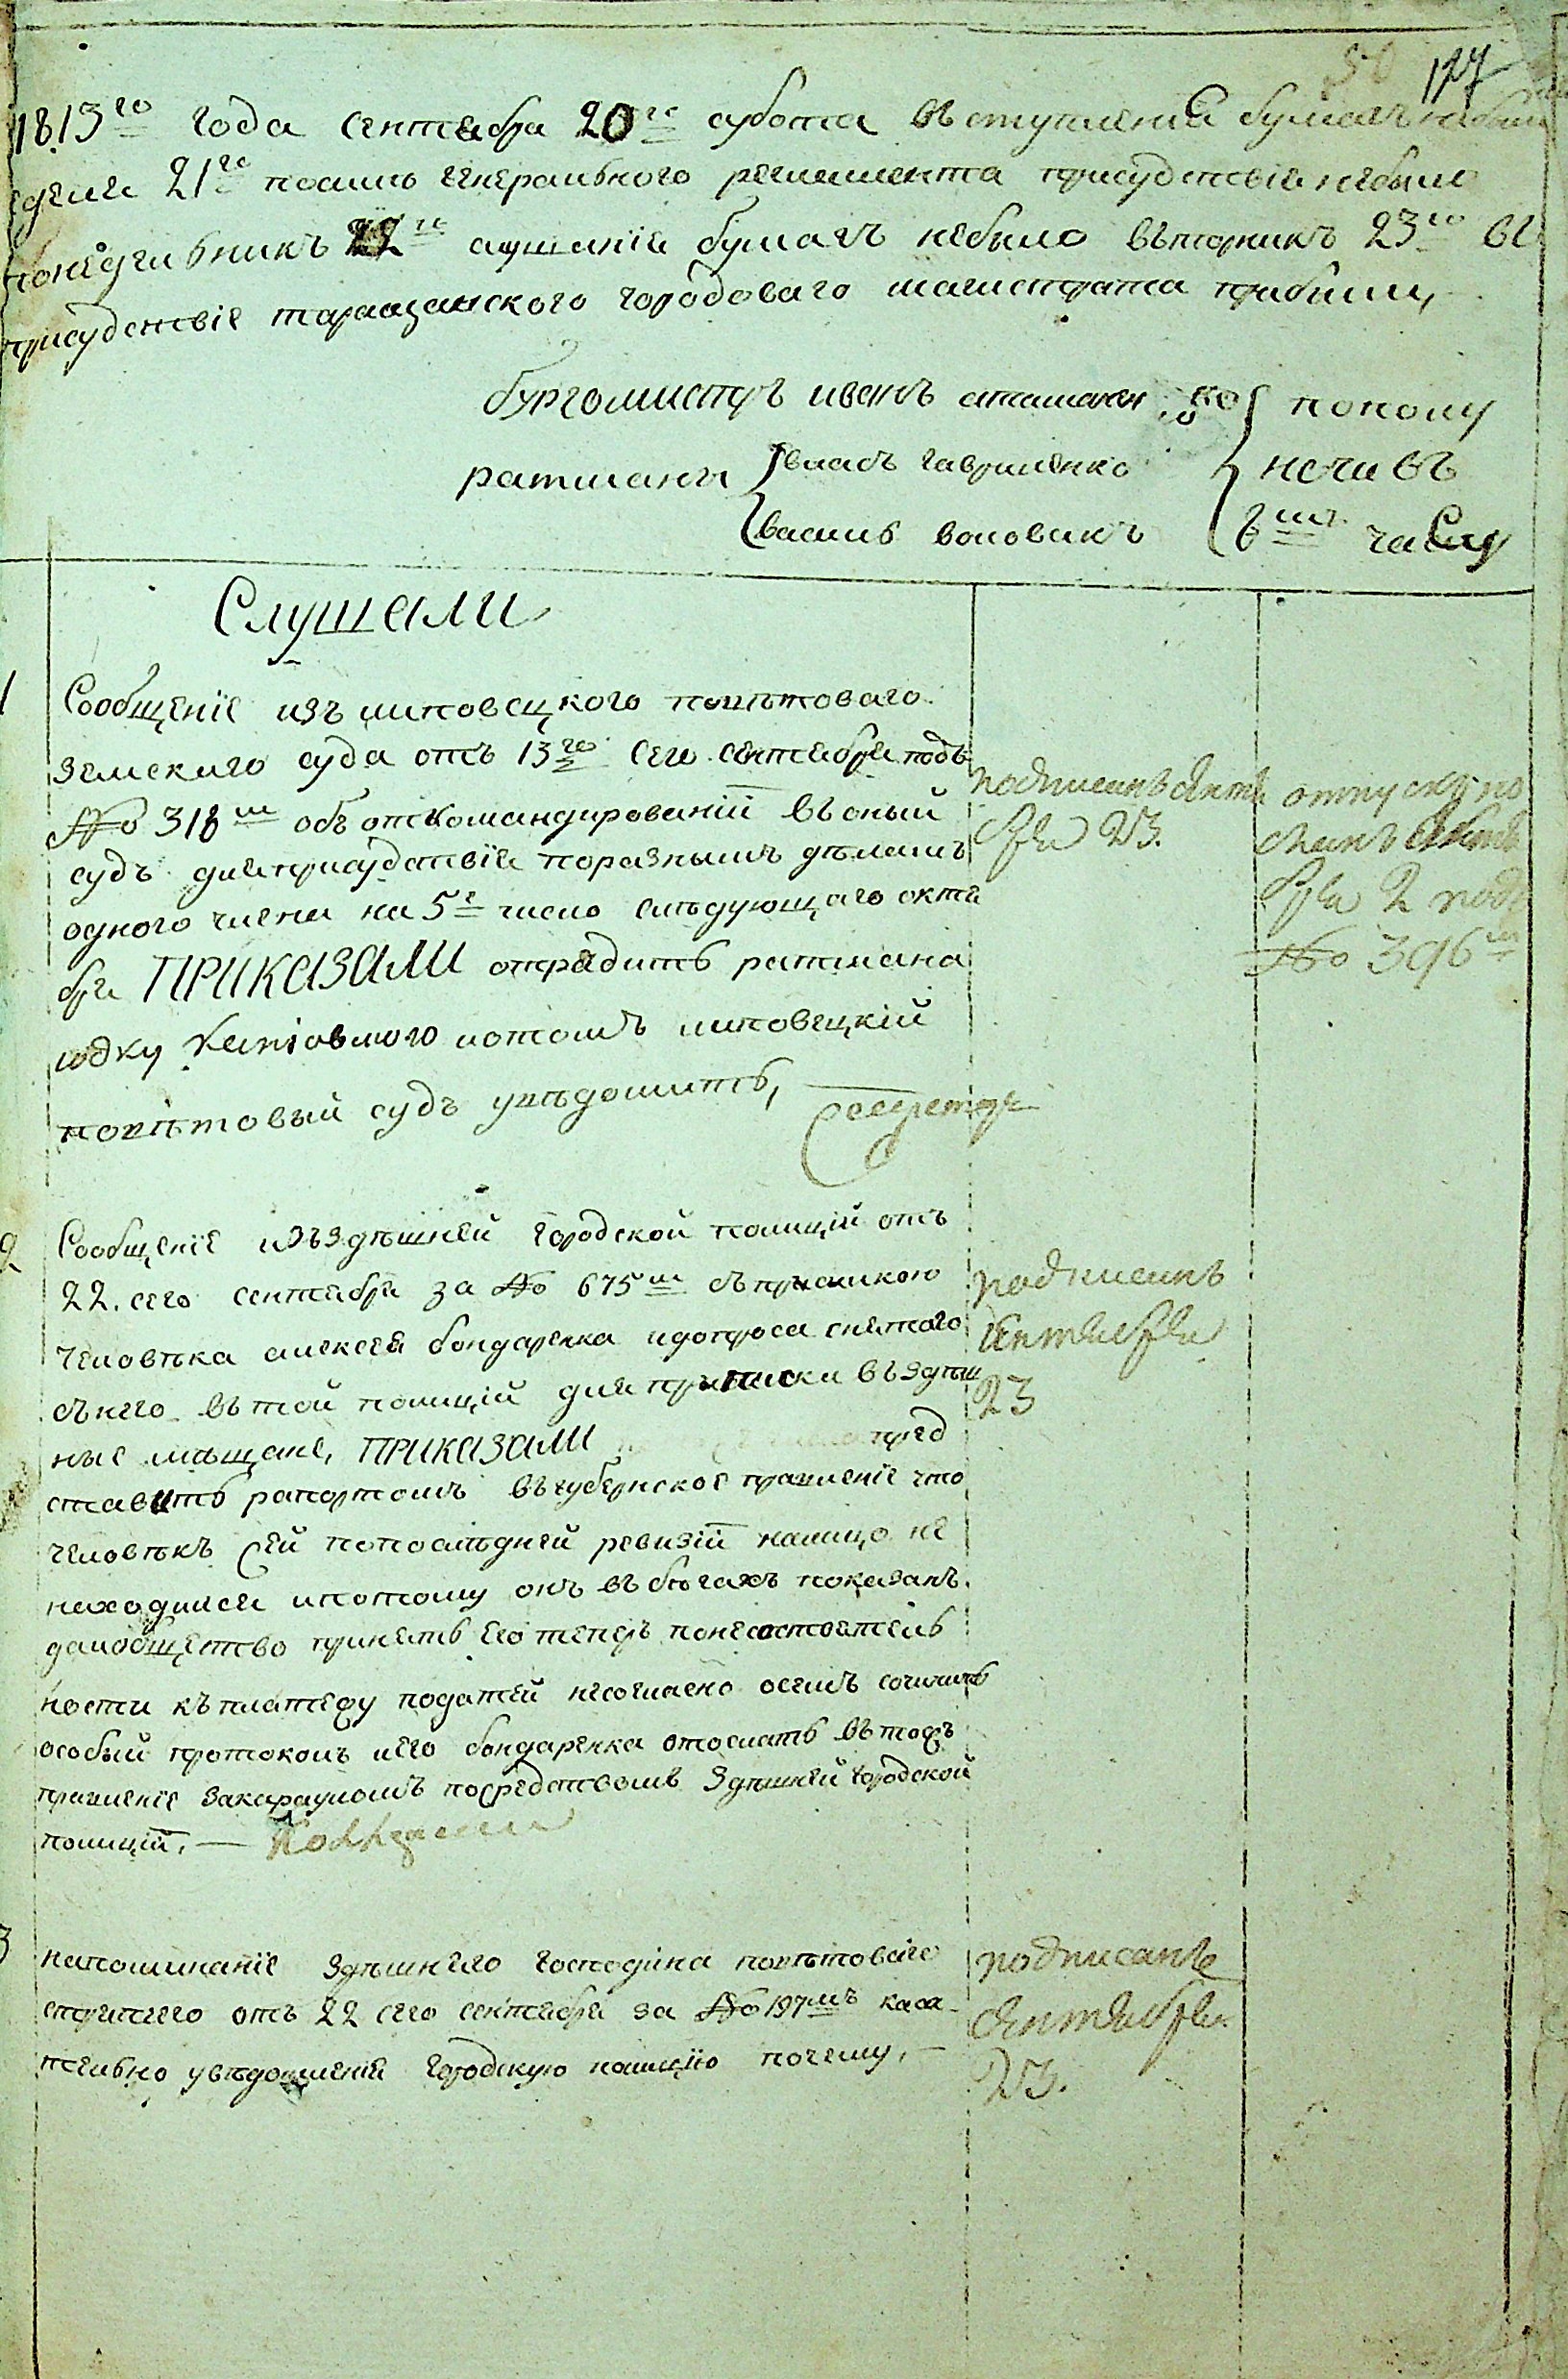 127
1813го года сентября 20го субота въступленія бумагъ небыло
21го посиль генерального регламента присудствія небыло
понедельникъ 22го слушанія бумагъ небыло въторникъ 23го въ
присудствіе таращанского городоваго магистрата прибыли,
бургомистръ иванъ пополу
ратманы власъ гавриленко ночи въ
василь воловикъ 6мъ часу
Слушали
1
Сообщеніе изъ липовецкого повѣтоваго
земского суда отъ 13го сего сентября подъ
No 318м объ откомандированіи въ оный
судъ для присудствія по разнымъ дѣламъ
одного члена на 5е число слѣдующаго октя
бря ПРИКАЗАЛИ отрядить ратмана
иотомъ липовецкій
повѣтовый судъ увѣдомить,
Секретарь
подписанъ сентя
бря 23.
отпускъ по
сланъ октя
бря 2 подъ
No 396м
2
Сообщеніе изъ здѣшней городской полиціи отъ
22. сего сентября за No 675м съ присилкою
человѣка алексея бондаренка и допроса снятого
снего въ той полиціи для приписки въ здѣш
ные мѣщане, ПРИКАЗАЛИ пред
ставить рапортомъ въ губернское правленіе что
человѣкъ сей по послѣдней ревизіи налицо не
находился и потому онъ въ бѣгахъ показанъ.
да и общество принять его теперь по несостоятель
ности къ платежу податей несогласно осемъ сочинить
особый протоколъ и его бондаренка отослать въ тожъ
правленіе за карауломъ посредствомъ здѣшней городской
полиціи. —
подписанъ
сентября
23
3
напоминаніе здѣшнего господина повѣтоваго
стряпчего отъ 22 сего сентября за No 197мъ каса
тельно увѣдомленія городскую полицію почему, —
подписанъ
сентября
23.